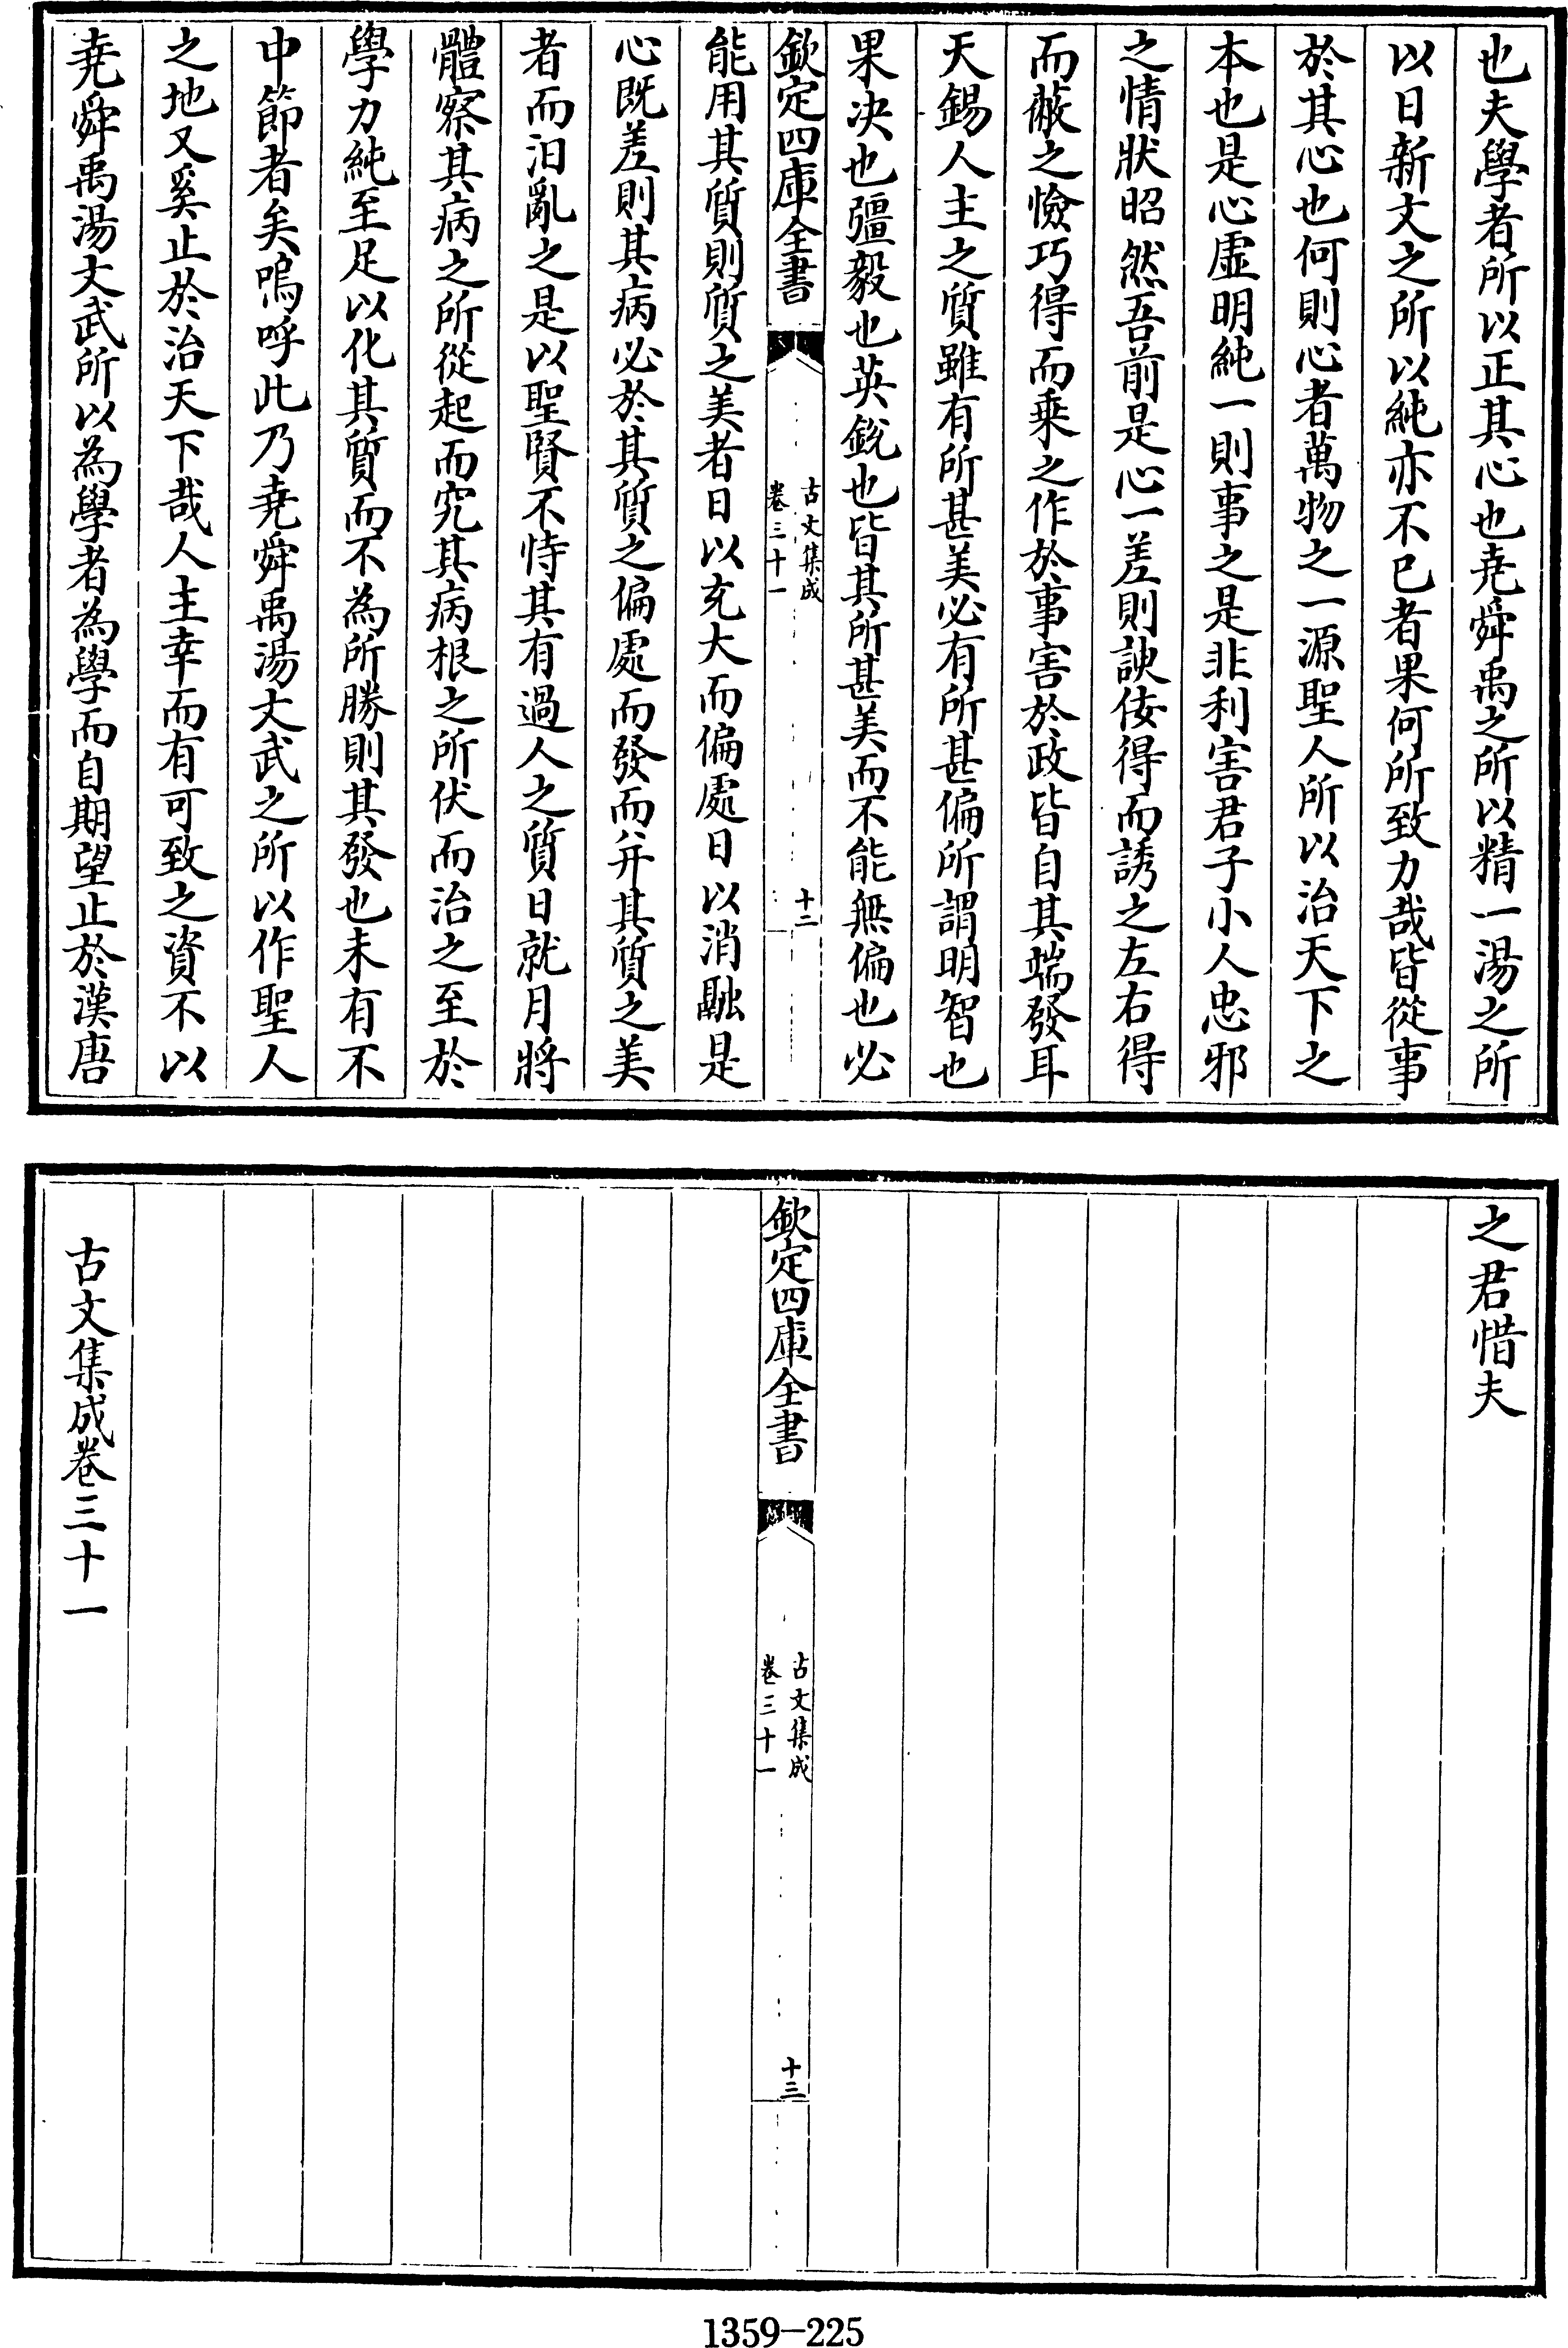 也夫學者所以正其心也堯舜禹之所以精一湯之所
以日新文之所以純亦不已者果何所致力哉皆從事
於其心也何則心者萬物之一源聖人所以治天下之
本也是心虛明純一則事之是非利害君子小人忠邪
之情狀昭然吾前是心一差則諛佞得而誘之左右得
而蔽之憸巧得而乗之作於事害於政皆自其端發耳
天錫人主之質雖有所甚美必有所甚偏所謂明智也
果决也彊毅也英銳也皆其所甚美而不能無偏也必
欽定四庫全書
古文集成
卷三十一
十二
能用其質則質之美者日以充大而偏處日以消融是
心既差則其病必於其質之偏處而發而并其質之美
者而汩亂之是以聖賢不恃其有過人之質日就月將
體察其病之所從起而究其病根之所伏而治之至於
學力純至足以化其質而不為所勝則其發也未有不
中節者矣嗚呼此乃堯舜禹湯文武之所以作聖人
之地又奚止於治天下哉人主幸而有可致之資不以
堯舜禹湯文武所以為學者為學而自期望止於漢唐
之君惜夫
欽定四庫全書
古文集成
卷三十一
十三
古文集成卷三十一
1359-225